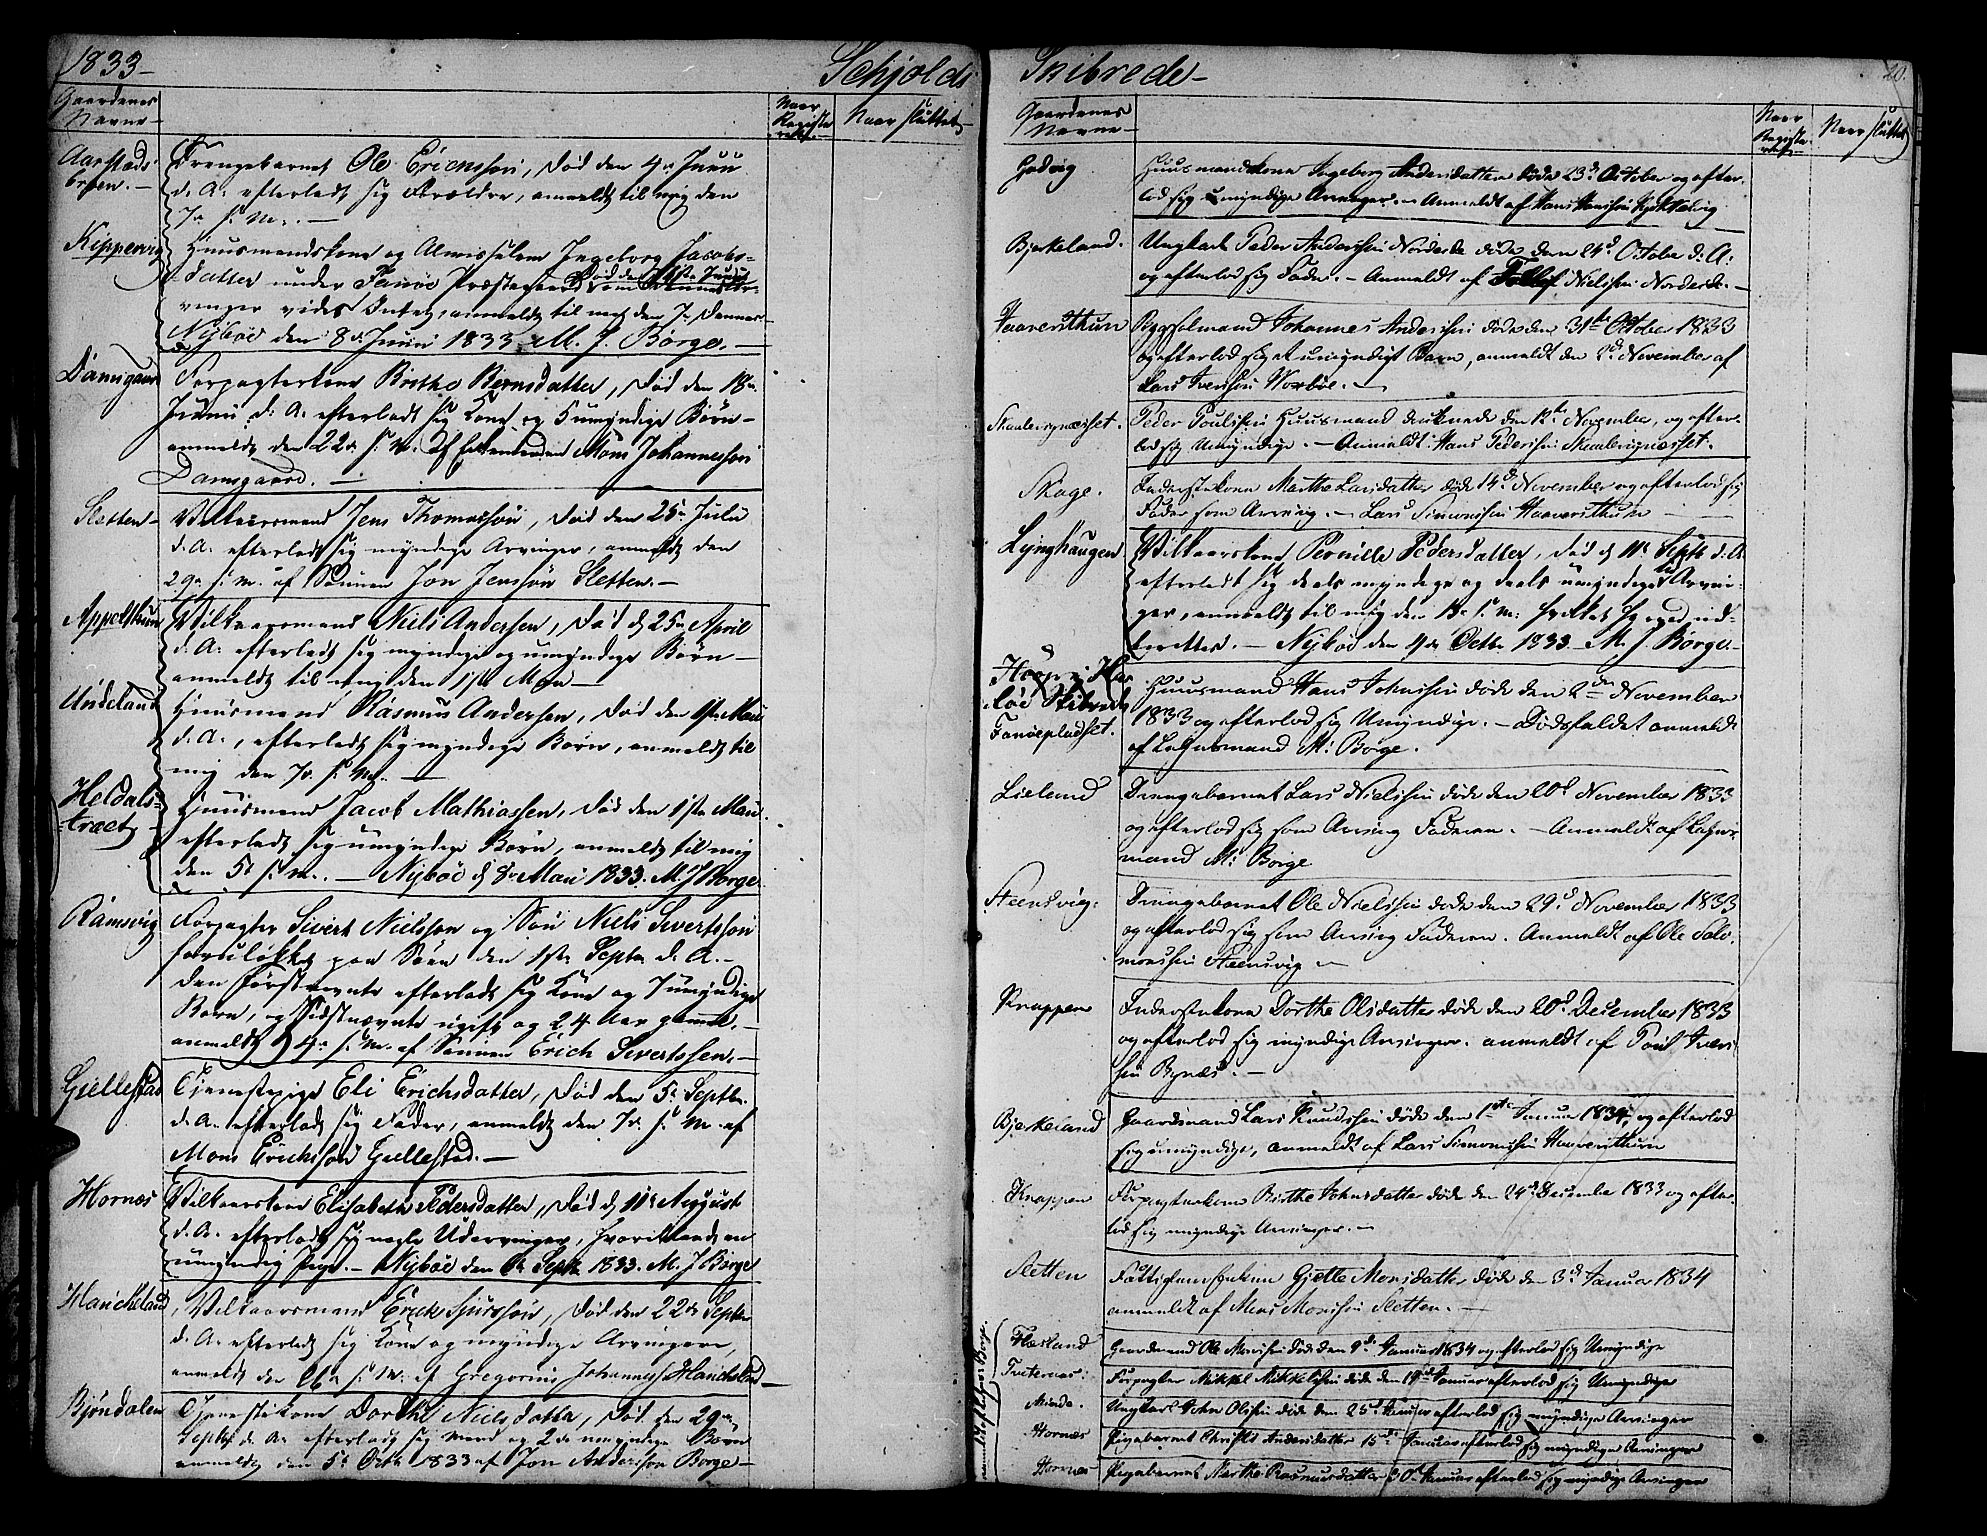 1833 Schjolds
Gaardenes Navne
Naar Registeret
Naar sluttet
Aarstads- broen.
Drengebarnet Ole Erichsson, død den 4de Juni
d. A. efterladt sig Forældre, anmeldt til mig den
7de s. M.
Kippervig
Huusmandskone og Almisselem Ingeborg Jacobs-
datter under Fanøe Præstegaard død den 1ste Juni
om Arvinger vides Intet, anmeldt til mig den 7de dennes
Nybøe den 8de Juni 1833 M. J. Børge.
Damsgaard
Forpagterkone Brithe Berntsdatter, død den 18de
Juni d. A. efterladt sig og 5 umyndige Børn
anmeldt den 22de s. M. af Enkemanden Mons Johannessøn
Damsgaard.
Sletten
Vilkaarsmand Jens Thomassøn, død den 25de Juli
d. A. efterladt sig myndige Arvinger, anmeldt den
29de s. M. af Sønnen Jon Jenssøn Sletten.
Appelthun
Vilkaarsmand Niels Andersen, død d 25de April
d. A. efterladt sig myndige og umyndige Børn
anmeldt til mig den 1ste Mai
Undeland
Huusmand Rasmus Andersen, død den 1ste Mai
d. A., efterladt sig myndige Børn, anmeldt til
mig den 7de s. M.
Heldals- træet
Huusmand Jacob Mathiassen, død den 1ste Mai
efterladt sig umyndige Børn, anmeldt til mig
den 5te s. M. Nybøe d 8de Mai 1833. M. J Børge
Ramsvig
Forpagter Sivert Nielssøn og Søn Niels Sivertssøn
forulykket paa Søen den 1ste Septr. d. A.
den Førstnævnte efterladt sig Kone og 7 umyndige
Børn, og Sidstnævnte ugift og 24 Aar gammel,
anmeldt d 4de s. M. af Sønnen Erich Sivertssen.
Gjellestad
Tjenestepige Eli Erichsdatter, død den 5te Septbr.
d. A. efterladt sig Fader, anmeldt den 7de s. M. af
Mons Erichssøn Gjellestad.
Hornæs
Vilkaarskone Elisabeth Pedersdatter, død d 11te August
d. A. efterladt sig nogle Udarvinger, hvoriblandt en
umyndig Pige. Nybøe den 6te Septr. 1833. M. J Børge
Hancheland
Vilkaarsmand Erick Sjurssøn, død den 22de Septbr
d. A. efterladt sig Kone og myndige Arvingere,
anmeldt den 26de s. M. af Gregorius Johanness. Hancheland
Bjøndalen
Tjenestekone Dorthe Nielsdatter, død den 29de
Septbr d. A. efterladt sig Mand og 2de umyndige Børn
anmeldt den 5te Octbr 1833 af Jon Anderssøn Børge
Skibrede
20.
Gaardenes Navne
Naar Registeret
Naar sluttet
Huusmandskone Ingeborg Andersdatter døde 23d October og efter-
lod sig umyndige Arvinger. Anmeldt af Hans Hanssen
Bjerkeland.
Ungkarl Peder Anderssen Nordeide døde den 24d October d. A.
og efterlod sig Fader. Anmeldt af Tollef Nielssen Nordeide.
Haaversthun
Bygselmand Johannes Anderssen døde den 31te October 1833
og efterlod sig et umyndigt Barn, anmeldt den 2d November af
Lars Iverssen Norbøe.
Skaalevignæsset.
Peder Poulssen Huusmand druknede den 12te November, og efter-
lod sig Umyndige. Anmeldt: Hans Pederssen Skaalevignæsset.
Skage.
Inderstekone Marthe Larsdatter døde 14d November og efterlod sig
Fader som Arving. Lars Simonssen Haaversthun
Lynghaugen
Vilkaarskone Pernille Pedersdatter, død d 11te Septr d. A
efterladt sig deels myndige og deels umyndige Arvin-
ger, anmeldt til mig den 18de s. M. hvilket herved ind-
berettes. Nybøe den 4de Octbr 1833 M. J. Børge
Fanøepladset.
Huusmand Hans Johnssen døde den 2den November
1833 og efterlod sig Umyndige. Dødsfaldet anmeldt
af Lehnsmand M: Børge.
Lieland
Drengebarnet Lars Nielssen døde den 20d November 1833
og efterlod sig som Arving Faderen. Anmeldt af Lehns-
mand M: Børge
Steensvig.
Drengebarnet Ole Nielssen døde den 29d November 1833
og efterlod sig som Arving Faderen. Anmeldt af Ole Salo-
monssen Steensvig
Knappen
Inderstekone Dorthe Olsdatter døde den 20d December 1833
og efterlod sig myndige Arvinger. anmeldt af Poul Ivers-
sen Bynæs.
Bjerkeland
Gaardmand Lars Knudssen døde den 1ste Januar 1834, og efterlod
sig umyndige, anmeldt af Lars Simonssen Haaversthun
Knappen
Forpagterkone Birthe Johnsdatter døde den 24d December 1833 og efter-
lod sig myndige Arvinger.
Sletten
Fattiglem Enken Gjette Monsdatter døde den 3d Januar 1834
anmeldt af Mons Monssen Sletten.
Flæsland
Gaardmand Ole Monssen døde den 9d Januar 1834 og efterlod sig Umyndige
Forpagter Mikkel Mikkelssen døde den 19d Januar efterlod sig Umyndige
Minde.
Ungkarl John Olssen døde den 25d Januar efterlod sig myndige Arvinger
Hornæs
Pigebarnet Christi Andersdatter 15de Januar efterlod sig myndige Arvinger
Hornæs
Pigebarnet Marthe Rasmusdatter 30d Januar efterlod sig myndige Arvinger
anmeldt af Lehnsm: Børge.